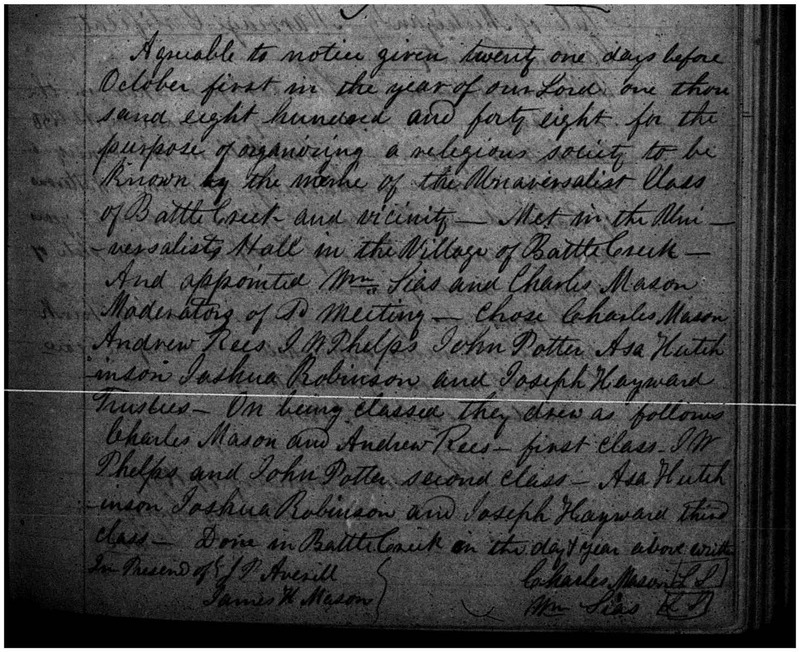 Agreable to notice given twenty one days before
October first in the year of our Lord one thou
sand eight hundred and forty eight for the
purpose of organising a religious society to be
Known by the name of the Unaversalist Class
of Battle Creek and vicinity — Met in the Uni —
-versalists Hall in the Village of Battle Creek —
And appointed Wm Sias and Charles Mason
Moderators of Sd Meeting — Chose Charles Mason
Andrew Rees J W Phelps John Potter Asa Hutch
-inson Joshua Robinson and Joseph Hayward
Trustees — On being classed they drew as follows
Charles Mason and Andrew Rees — first class — J W
Phelps and John Potter second class — Asa Hutch
-inson Joshua Robinson and Joseph Hayward third
class — Done in Battle Creek on the day & year above writen
In Presend of J P Averill Charles Mason L S
James H Mason Wm Sias L S